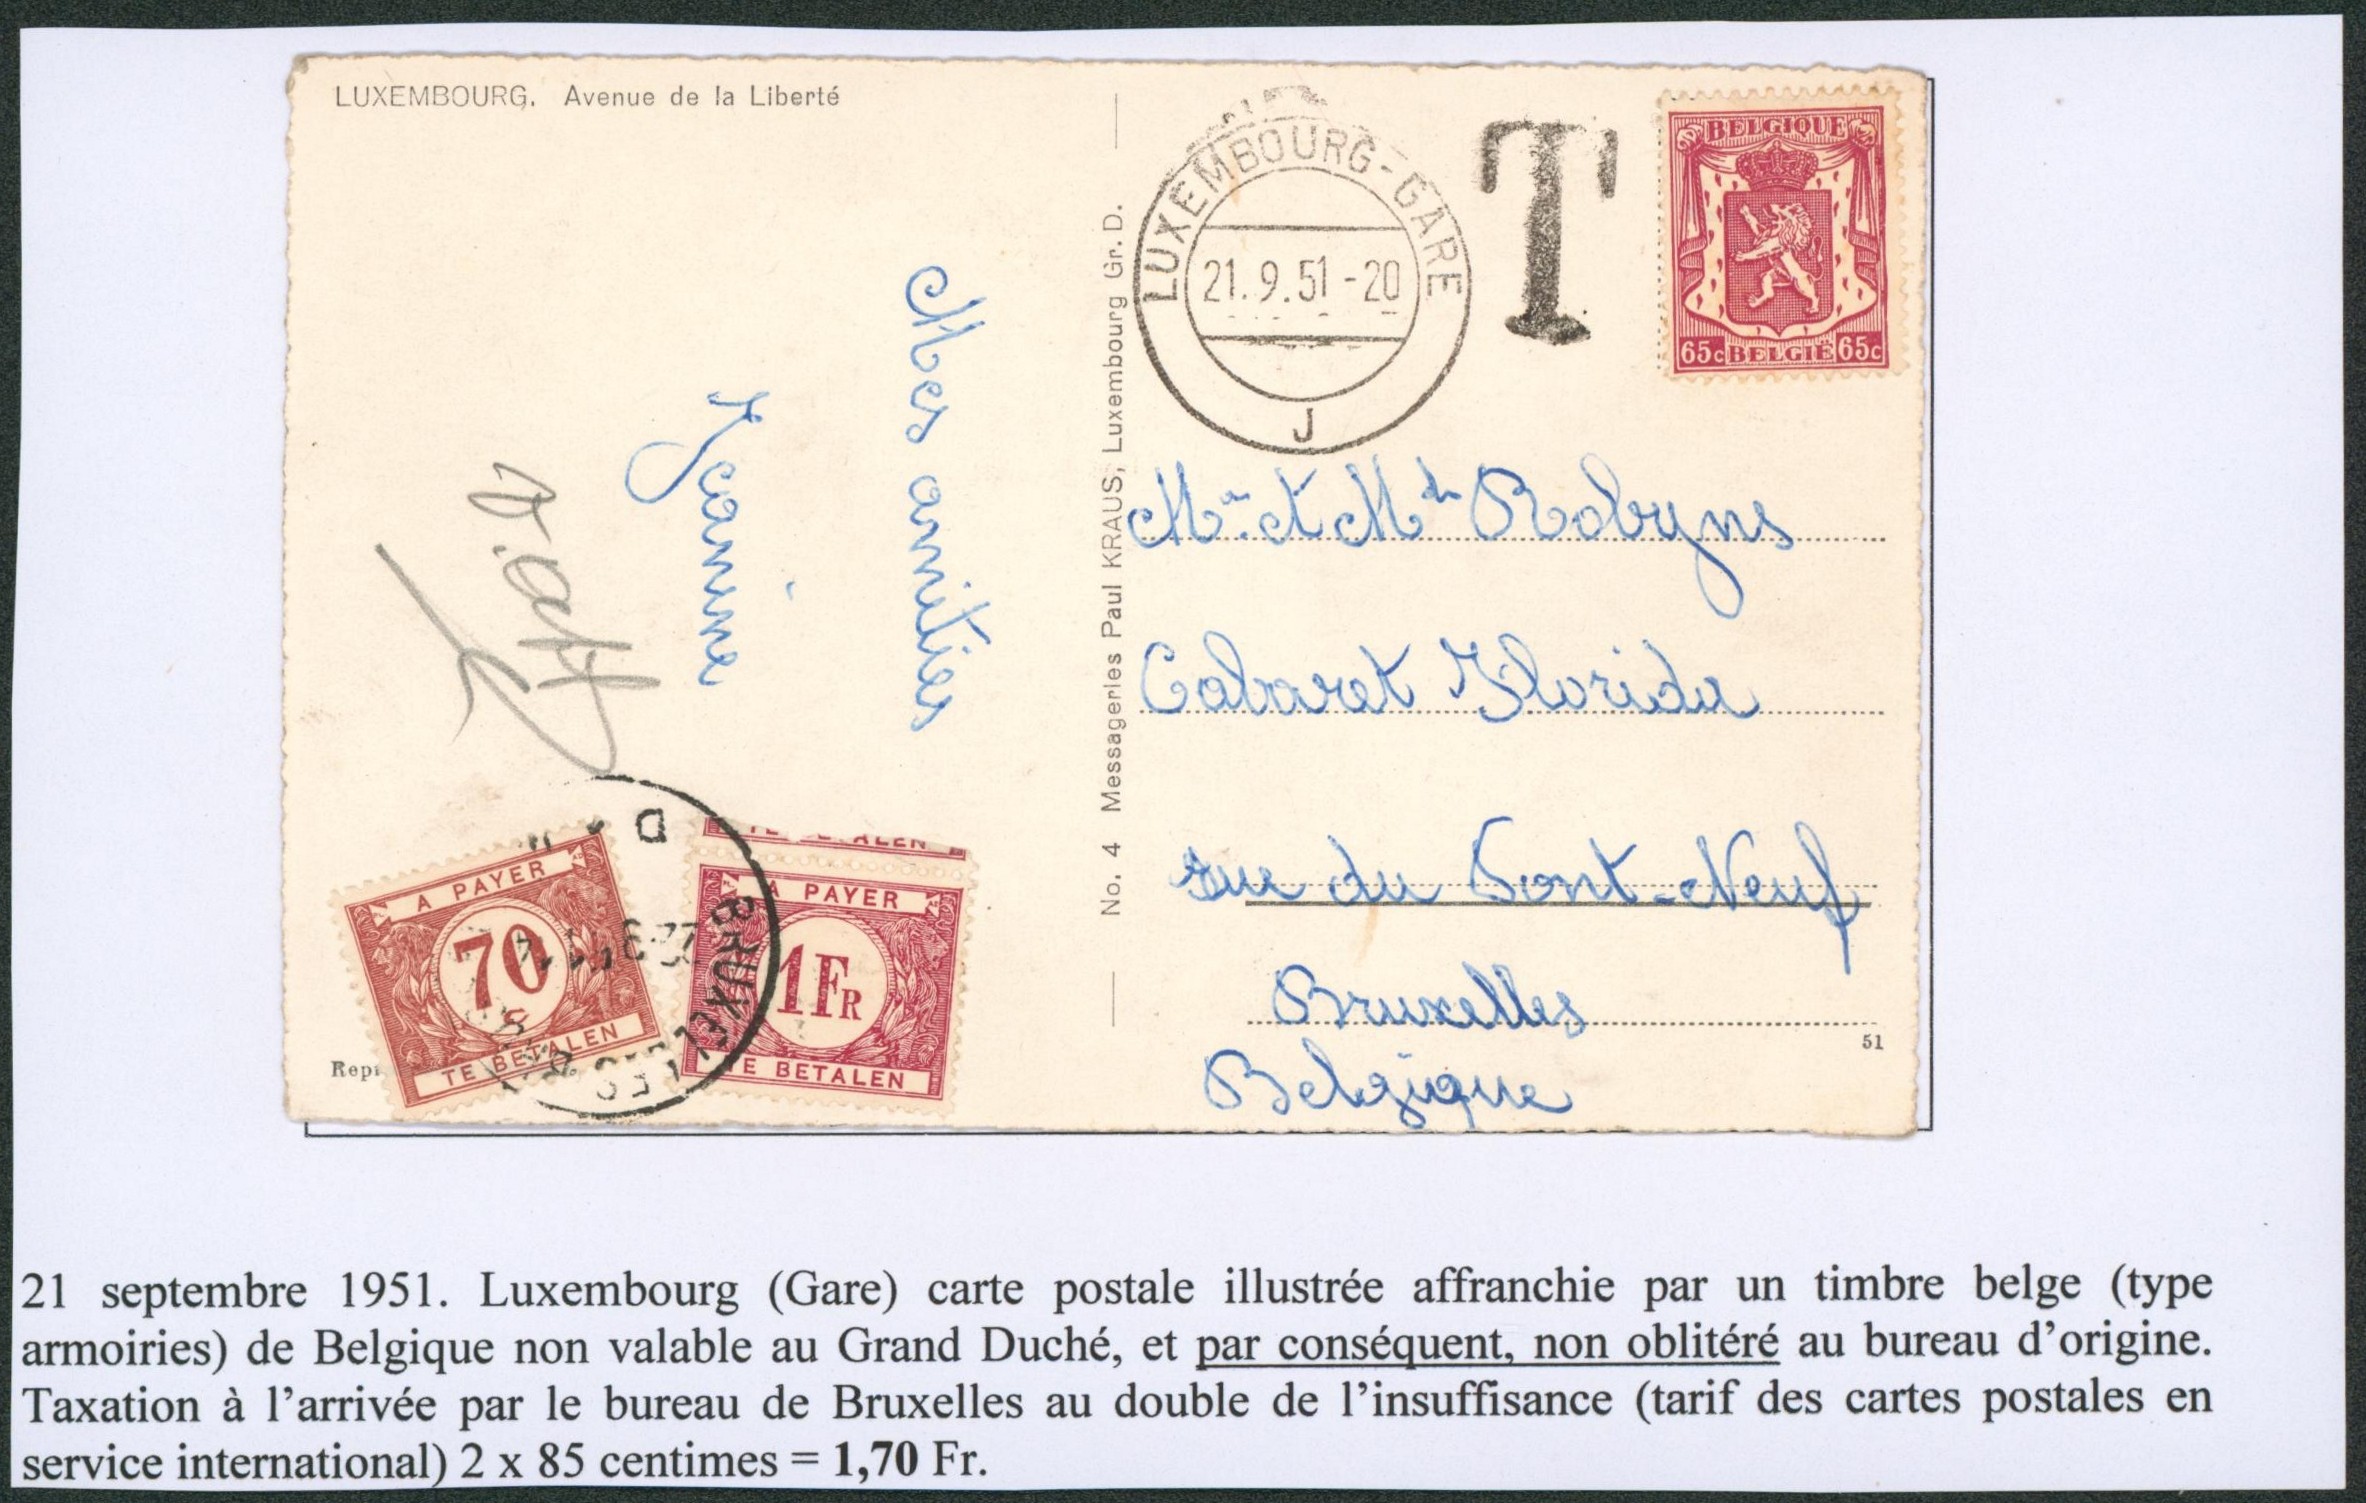 LUXEMBOURG. Avenue de la Liberté
LUXEMBOURG-GARE
21.9.51-20
J
T
BELGIQUE
65c BELGIË 65c
Mes amitiés
Jeannine
No. 4 Messageries Paul KRAUS, Luxembourg Gr. D.
Mr et Mde Robyns
Cabaret Florida
rue du Pont-Neuf
Bruxelles
Belgique
51
D
BRUXELLES
A PAYER
70
c
TE BETALEN
TE BETALEN
A PAYER
1 FR
TE BETALEN
Repr
21 septembre 1951. Luxembourg (Gare) carte postale illustrée affranchie par un timbre belge (type
armoiries) de Belgique non valable au Grand Duché, et par conséquent, non oblitéré au bureau d’origine.
Taxation à l’arrivée par le bureau de Bruxelles au double de l’insuffisance (tarif des cartes postales en
service international) 2 x 85 centimes = 1,70 Fr.